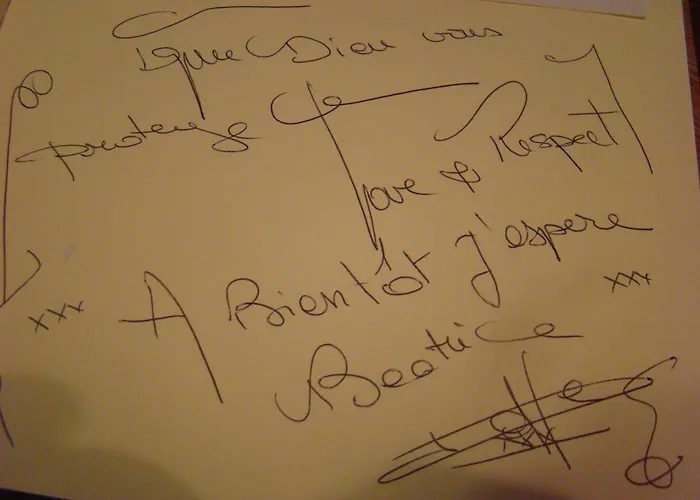 que Dieu vous
protège
Love & Respect
xxx A Bientôt J'espere xxx
Beatrice
xxx